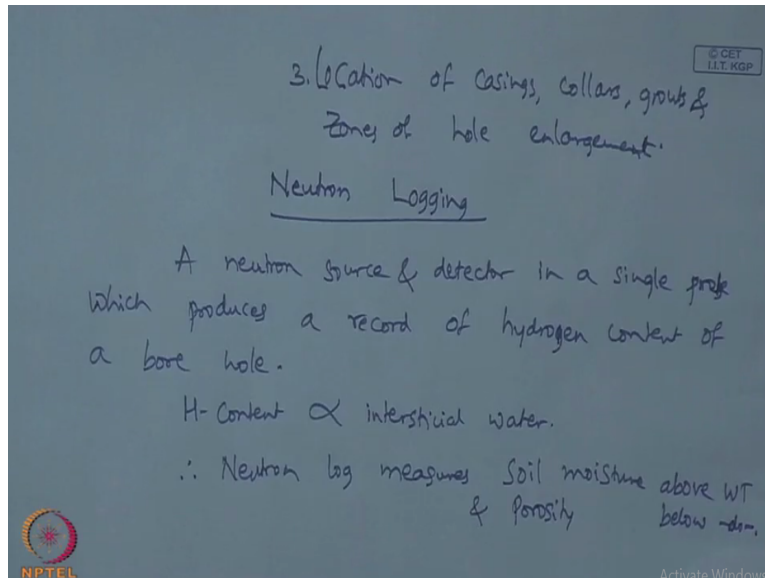 © CET
I.I.T. KGP
3. Location of casings, collars, grouts &
Zones of hole enlargement.
Neutron Logging
A neutron source & detector in a single probe
which produces a record of hydrogen content of
a bore hole.
H-Content ∝ intersticial water.
∴ Neutron log measures soil moisture above WT
& Porosity below -do-.
NPTEL
Activate Windows